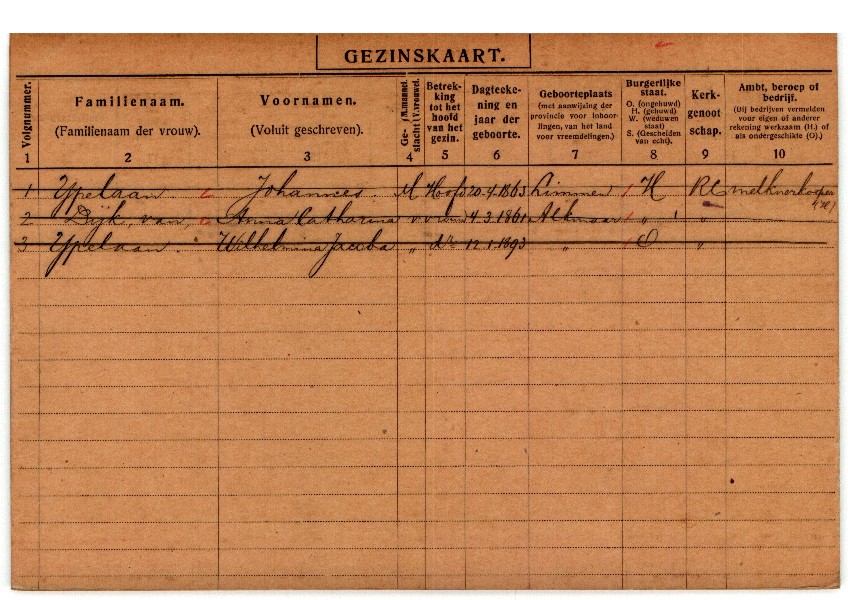 GEZINSKAART.
Volgnummer. Familienaam. (Familienaam der vrouw). Voornamen. (Voluit geschreven). Ge- (M.mannel. slacht (V.vrouwel. Betrek- king tot het hoofd van het gezin. Dagteeke- ning en jaar der geboorte. Geboorteplaats (met aanwijzing der provincie voor inboor- lingen, van het land voor vreemdelingen.) Burgerlijke staat. O. (ongehuwd) H. (gehuwd) W. (weduwen staat) S. (Gescheiden van echt). Kerk- genoot schap. Ambt, beroep of bedrijf. (Bij bedrijven vermelden voor eigen of anderer rekening werkzaam (H.) of als ondergeschikte (O).)
1 2 3 4 5 6 7 8 9 10
1 Ypelaan Johannes. M Hoofd 20.4.1863 Limmen H R.C. melkverkooper
2 Dijk, van, Anna Catharina v vrouw 4.3.1861 Alkmaar " "
3 Ypelaan. Wilhelmina Jacoba " dr 12.1.1893 " O "